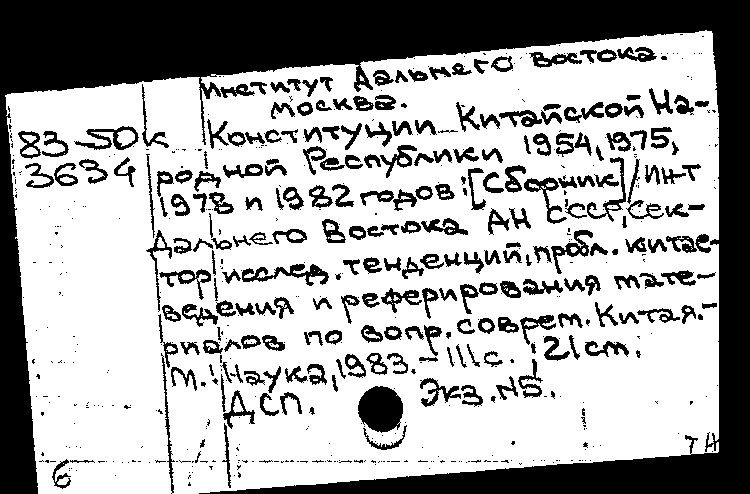 Институт Дальнего Востока.
Москва.
83-50к Конституции Китайской На-
3634 родной Республики 1954, 1975,
1978 и 1982 годов: [Сборник] / Ин-т
Дальнего Востока АН СССР, Сек-
тор исслед. тенденций, пробл. китае-
ведения и реферирования мате-
риалов по вопр. соврем. Китая.-
М.: Наука, 1983.- 111 с. ; 21 cm.
ДСП. Экз. №5.
ТН
6